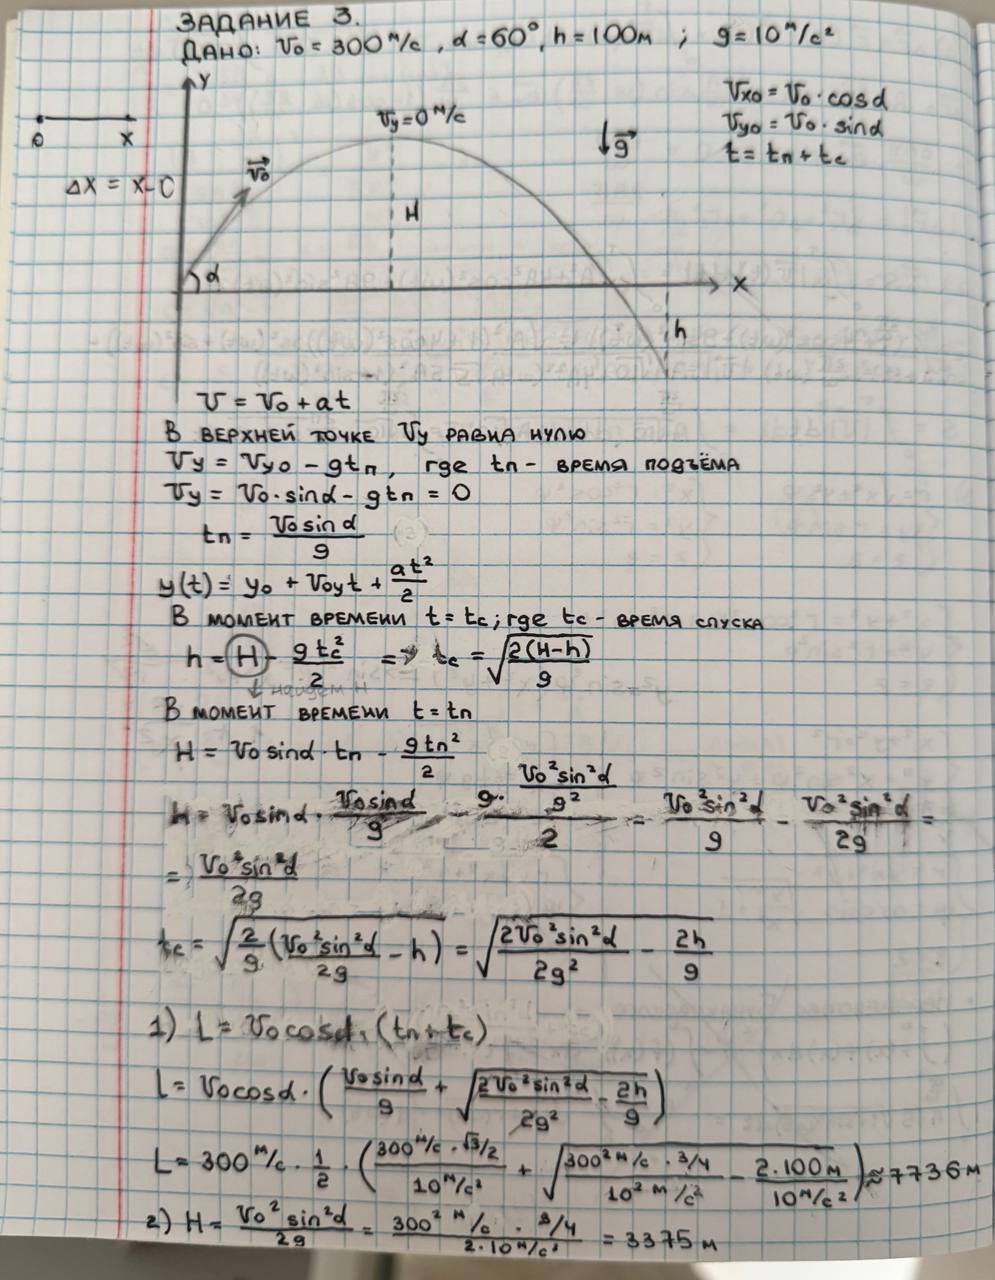 ЗАДАНИЕ 3.
ДАНО: V₀ = 300 м/с, α = 60°, h = 100м ; g = 10 м/с²
y
Vy = 0 м/с
Vx₀ = V₀ · cosα
Vy₀ = V₀ · sinα
t = tп + tс
0 x
Δx = x - 0
V₀
g
H
α
x
h
V = V₀ + at
В ВЕРХНЕЙ ТОЧКЕ Vy РАВНА НУЛЮ
Vy = Vy₀ - gtп, где tп - ВРЕМЯ ПОДЪЁМА
Vy = V₀ · sinα - gtп = 0
tп = V₀sinα / g
y(t) = y₀ + V₀yt + at²/2
В МОМЕНТ ВРЕМЕНИ t = tс; где tс - ВРЕМЯ СПУСКА
h = H - gtс²/2 => tс = √(2(H-h)/g)
найдём H
В МОМЕНТ ВРЕМЕНИ t = tп
H = V₀sinα · tп - gtп²/2
H = V₀sinα · V₀sinα/g - (g · V₀²sin²α/g²)/2 = V₀²sin²α/g - V₀²sin²α/2g =
= V₀²sin²α/2g
tс = √(2/g (V₀²sin²α/2g - h)) = √(2V₀²sin²α/2g² - 2h/g)
1) L = V₀cosα · (tп + tс)
L = V₀cosα · (V₀sinα/g + √(2V₀²sin²α/2g² - 2h/g))
L = 300 м/с · 1/2 · (300 м/с · √3/2 / 10 м/с² + √(300² м/с · 3/4 / 10² м/с² - 2.100м / 10 м/с²)) ≈ 7736 м
2) H = V₀² sin²α/2g = 300² м/с · 3/4 / 2·10 м/с² = 3375 м